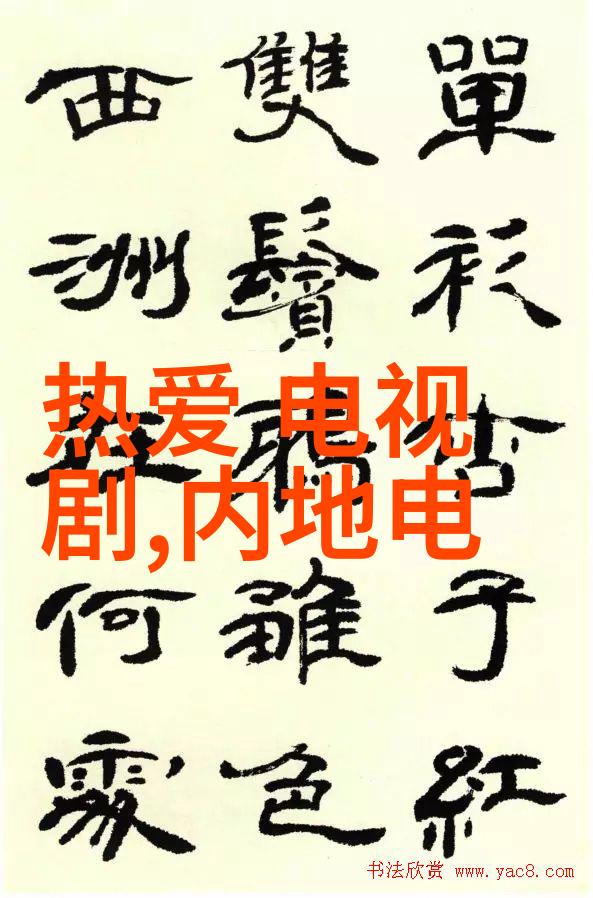 單衫杏子紅
雙鬢鴉雛色
西洲在何處
热爱 电视
剧,内地电
书法欣赏 www.yac8.com